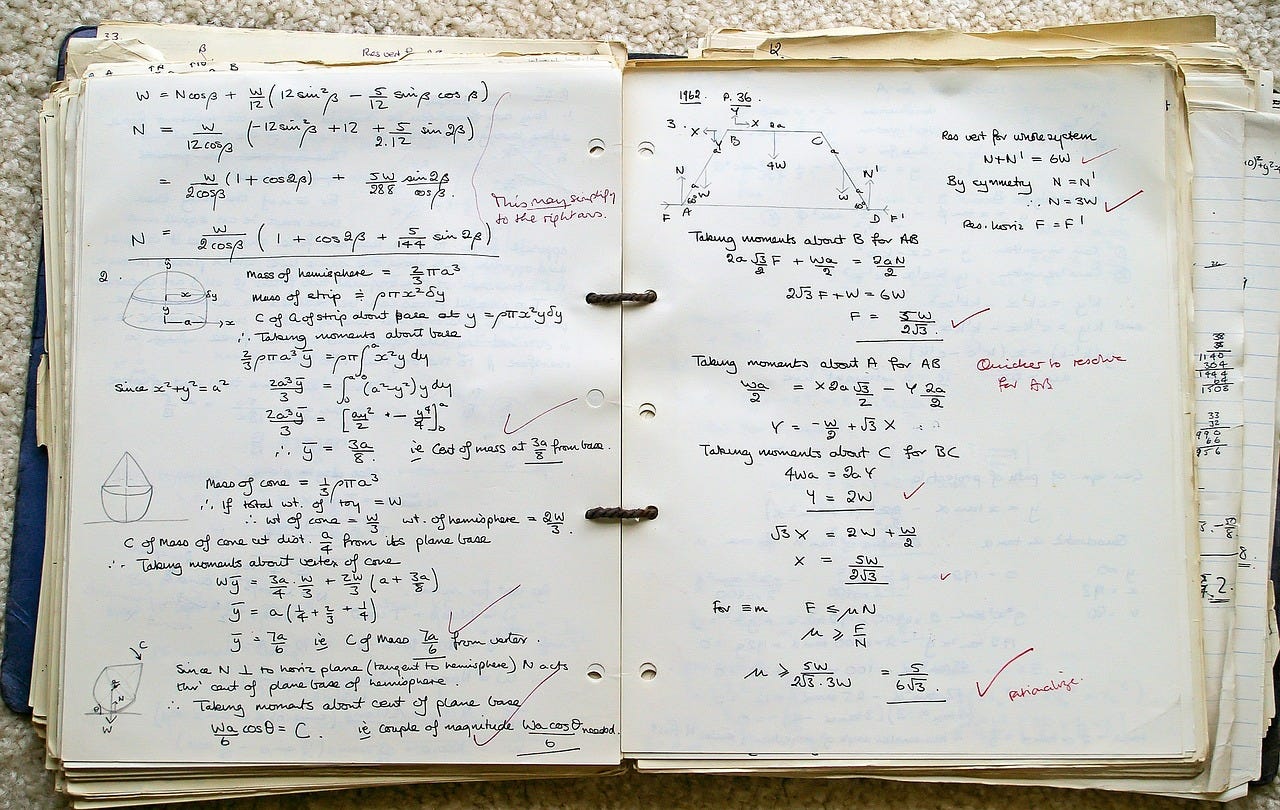 33.
β
Res vert
A B
W = Ncosβ + W/12 (12sin²β - 5/12 sinβ cosβ)
N = W/12cosβ (-12sin²β + 12 + 5/2.12 sin2β)
= W/2cosβ (1 + cos2β) + 5W/288 sin2β/cosβ.
This may simplify
to the right ans.
N = W/2cosβ (1 + cos2β + 5/144 sin2β)
2.
y
x δy
y
a x
Mass of hemisphere = 2/3 πa³
Mass of strip ≑ ρπx²δy
C of G of strip about base at y = ρπx²yδy
∴ Taking moments about base
2/3 ρπa³ȳ = ρπ∫₀ᵃ x²y dy
Since x²+y²=a² 2a³ȳ/3 = ∫₀ᵃ (a²-y²)y dy
2a³ȳ/3 = [ay²/2 - y⁴/4]₀ᵃ
∴ ȳ = 3a/8. ie Cent of mass at 3a/8 from base.
Mass of cone = 1/3 ρπa³
∴ If total wt. of toy = W
∴ wt of cone = W/3 wt. of hemisphere = 2W/3.
C of Mass of cone at dist. a/4 from its plane base
∴ Taking moments about vertex of cone
Wȳ = 3a/4 . W/3 + 2W/3 (a + 3a/8)
ȳ = a(1/4 + 2/3 + 1/4)
ȳ = 7a/6 ie C of Mass 7a/6 from vertex.
C
θ N
W
Since N ⊥ to horiz plane (tangent to hemisphere) N acts
thro' cent of plane base of hemisphere.
∴ Taking moments about cent of plane base
Wa/6 cosθ = C. ie couple of magnitude Wa cosθ/6 needed.
12
1962. P. 36.
3. X Y X 2a
Y B C
a 4W a
N a W W a N'
F A 60° 60° D F'
Res vert for whole system
N+N' = 6W
By symmetry N = N'
∴ N = 3W
Res. horiz F = F'
Taking moments about B for AB
2a √3/2 F + Wa/2 = 2aN/2
2√3 F + W = 6W
F = 5W/2√3.
Taking moments about A for AB
Quicker to resolve
for AB
Wa/2 = X 2a √3/2 - Y 2a/2
Y = -W/2 + √3 X
Taking moments about C for BC
4Wa = 2aY
Y = 2W
√3 X = 2W + W/2
X = 5W/2√3
For ≡m F ≤ μN
μ ≥ F/N
μ ≥ 5W/2√3.3W = 5/6√3.
rationalize.
38
38
1140
304
1444
64
1508
33
32
990
66
956
2.